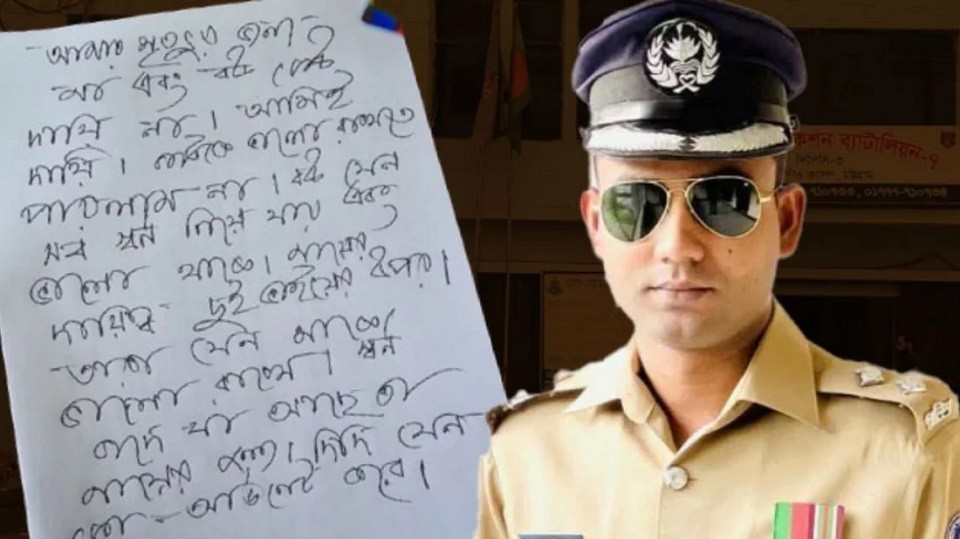 আমার মৃত্যুর জন্য
মা এবং বউ কেউ
দায়ি না। আমিই
দায়ি। কাউকে ভালো রাখতে
পারলাম না। বউ যেন
সব স্বর্ন নিয়ে যায় এবং
ভালো থাকে। মায়ের
দায়িত্ব দুই ভাইয়ের উপর।
তারা যেন মাকে
ভালো রাখে। স্বর্ন
বাদে যা আছে তা
মায়ের জন্য। দিদি যেন
কো-অর্ডিনেট করে।
কশন ব্যাটালিয়ন-৭